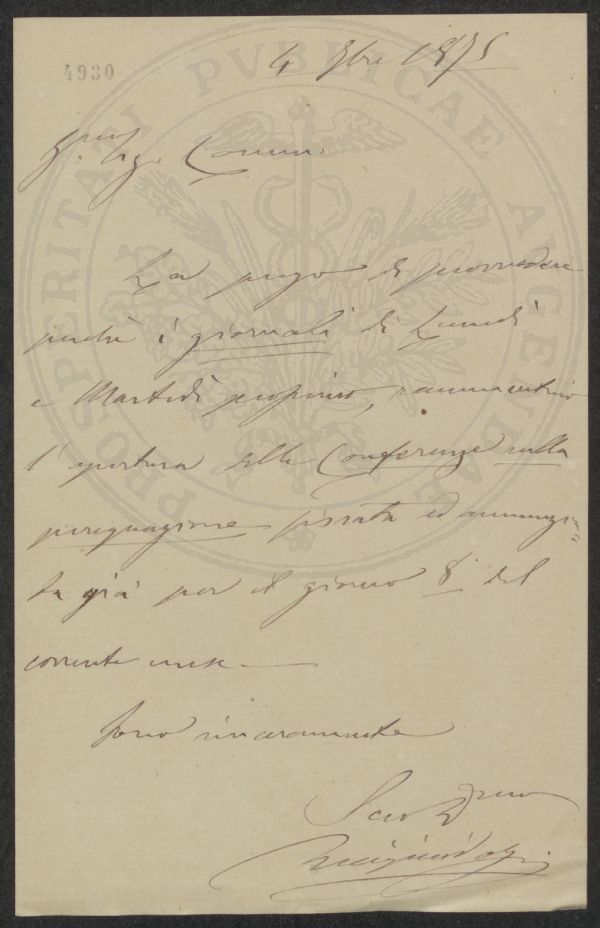 4930
4 1875
PROSPERITATI PVBLICAE AVGENDAE
Sig. Comm.
La prego di provvedere
perchè i giornali di Lunedì
e Martedì prossimo, rammentino
l'apertura delle Conferenze sulla
perequazione fissata ed annunzia=
ta già per il giorno 8 del
corrente mese
Sono sinceramente
Suo